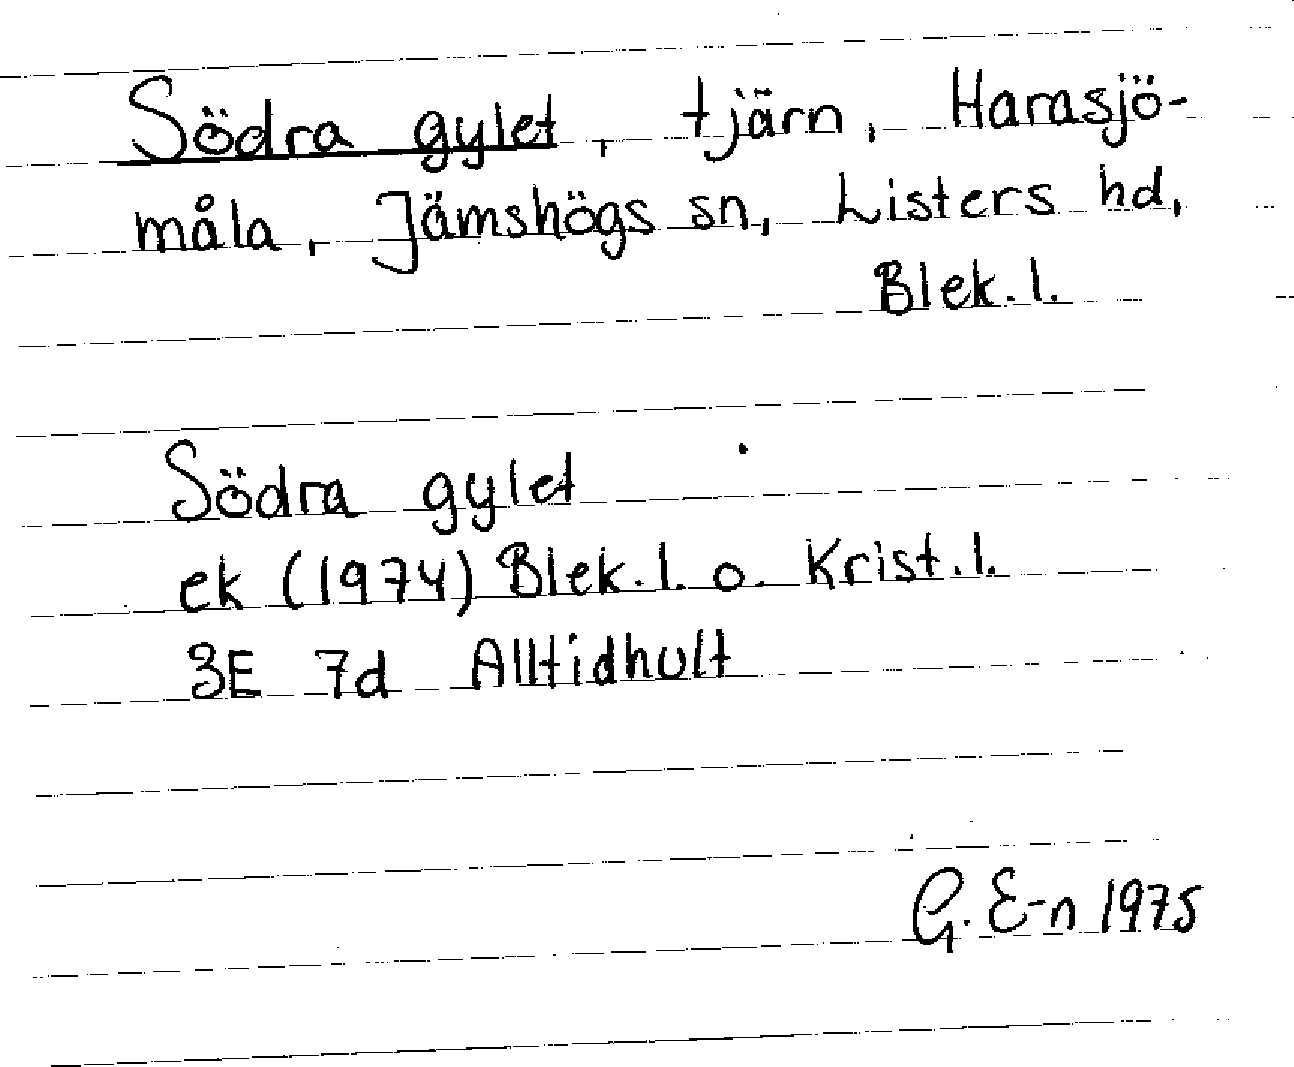 Södra gylet, tjärn, Harasjö-
måla, Jämshögs sn, Listers hd,
Blek.l.
Södra gylet
ek (1974) Blek.l. o. Krist.l.
3E 7d Alltidhult
G. E-n 1975